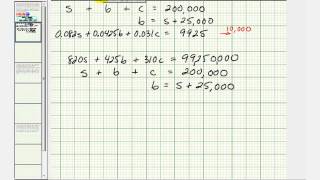 s + b + c = 200,000
b = s + 25,000
0.082s + 0.0425b + 0.031c = 9925 → 10,000
820s + 425b + 310c = 99250,000
s + b + c = 200,000
b = s + 25,000